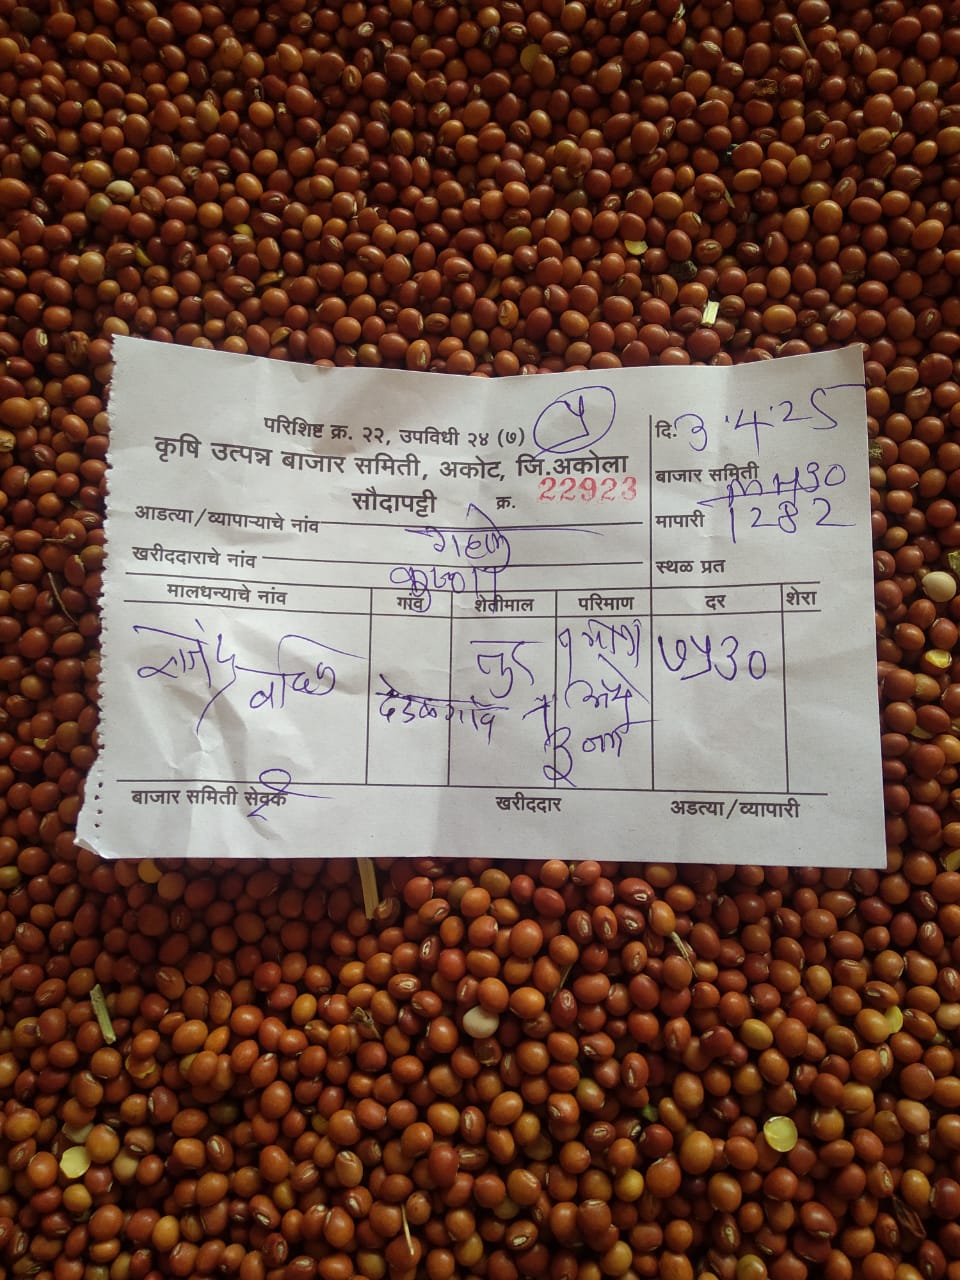 परिशिष्ट क्र. २२, उपविधी २४ (७)
५
कृषि उत्पन्न बाजार समिती, अकोट, जि.अकोला
सौदापट्टी क्र. 22923
दि. 3.4.25
बाजार समिती MH30
मापारी 1282
स्थळ प्रत
आडत्या/व्यापाऱ्याचे नांव
खरीददाराचे नांव
मालधन्याचे नांव गांव शेतीमाल परिमाण दर शेरा
तुर ७५30
देउळगाव
बाजार समिती सेवक खरीददार अडत्या/व्यापारी